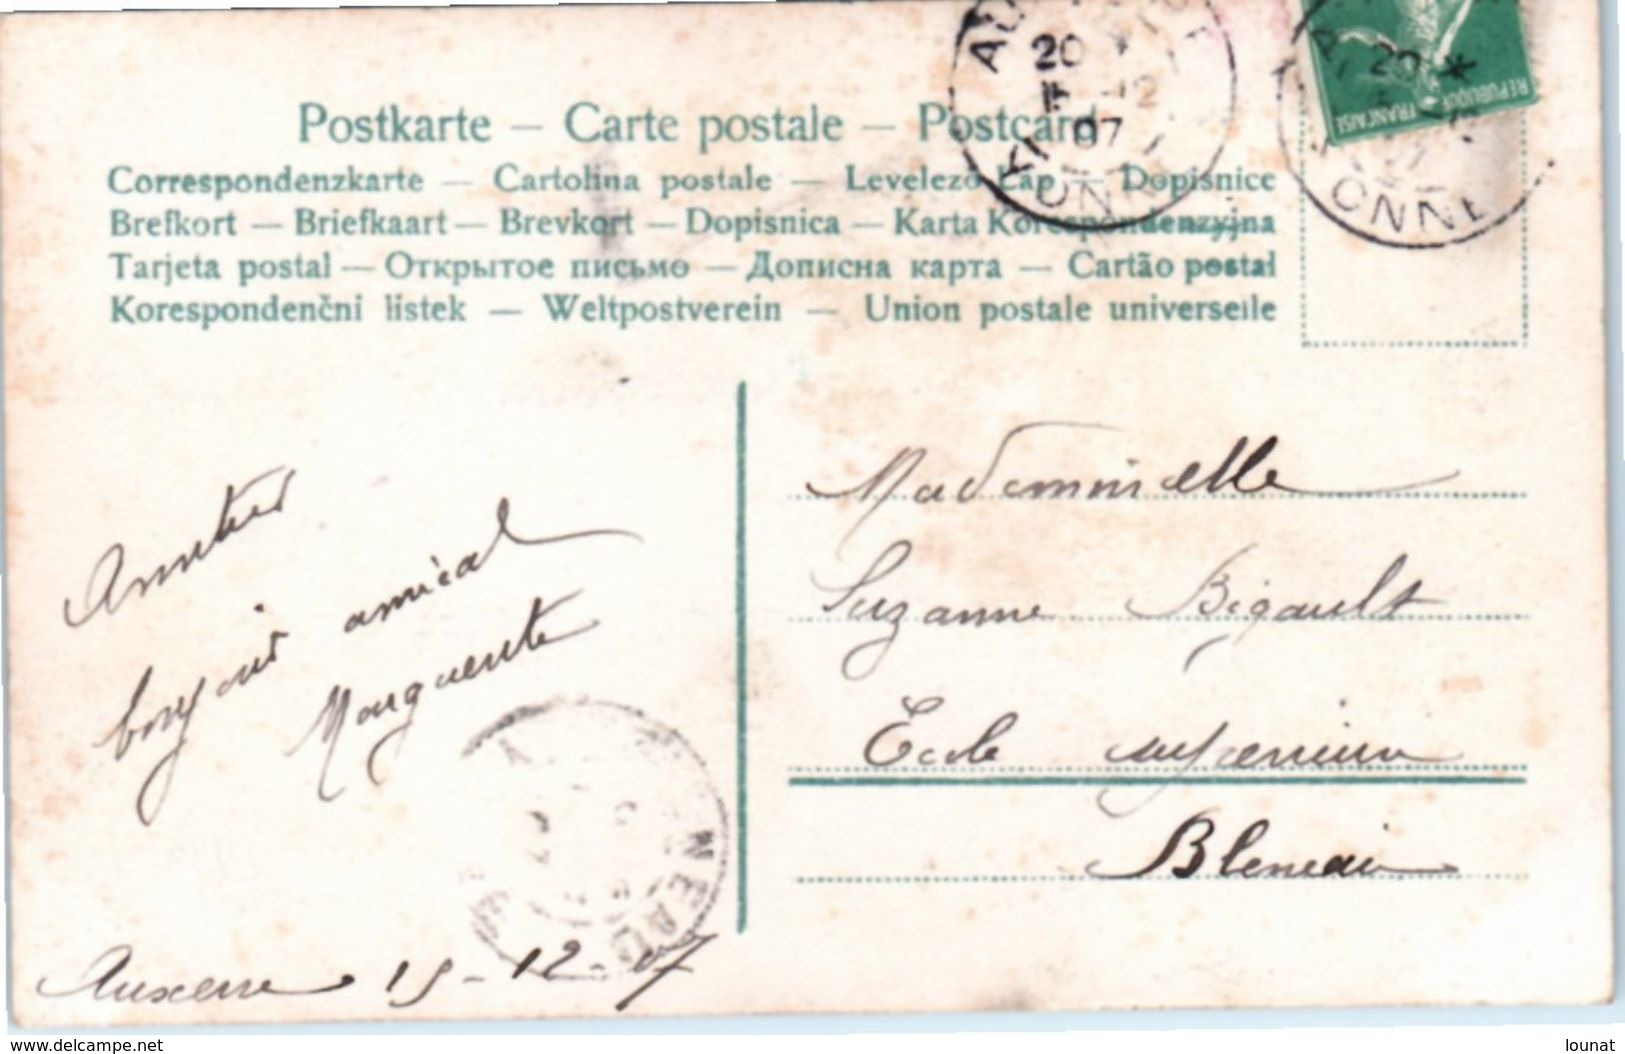 Postkarte — Carte postale — Postcard
Correspondenzkarte — Cartolina postale — Levelező Lap — Dopisnice
Brefkort — Briefkaart — Brevkort — Dopisnica — Karta Korespondenzyjna
Tarjeta postal — Открытое письмо — Дописна карта — Cartão postal
Korespondenčni listek — Weltpostverein — Union postale universelle
20
12
07
YONNE
REPUBLIQUE
FRANÇAISE
20
ONNE
Amitiés
bonjour amical
Marguerite
Mademoiselle
Suzanne Bigault
École supérieure
Bleneau
NEAU
Auxerre 15-12-07
delcampe.net
lounat